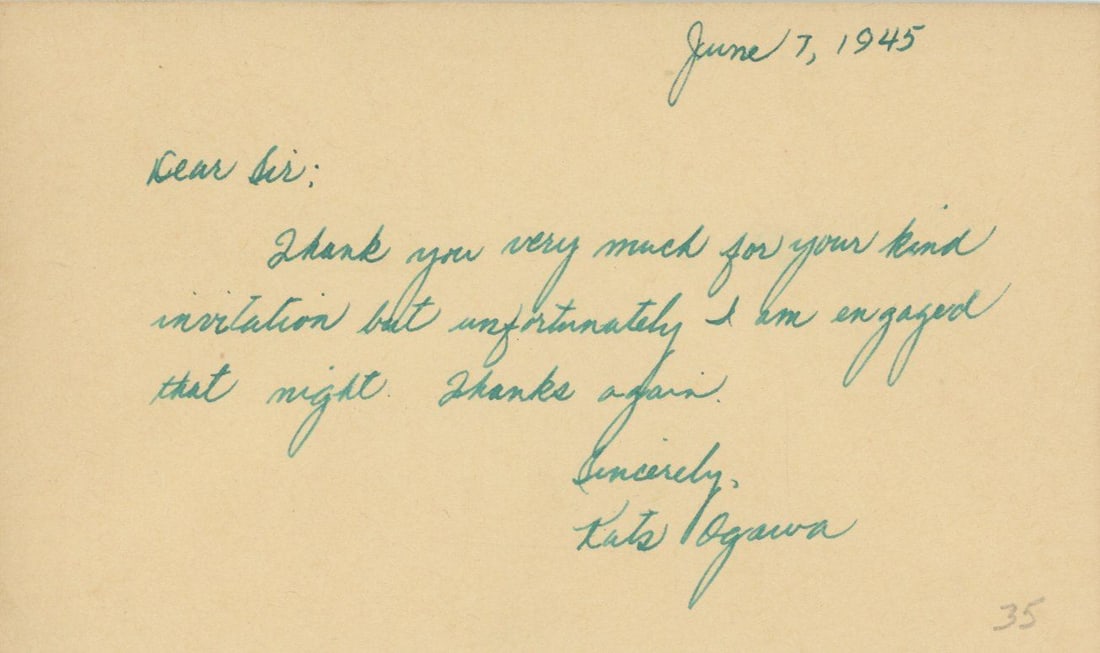 June 7, 1945
Dear Sir;
Thank you very much for your kind
invitation but unfortunately I am engaged
that night. Thanks again.
Sincerely,
Kats Ogawa
35